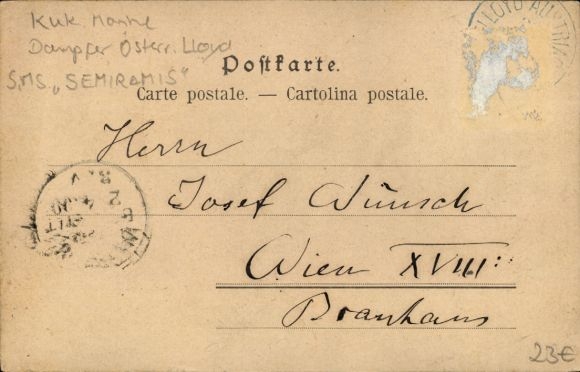 Kuk. Marine
Dampfer Österr. Lloyd
S.M.S. „SEMIRAMIS“
LLOYD AUSTRIA
Postkarte.
Carte postale. — Cartolina postale.
Herrn
Josef Wünsch
Wien XVIII:
Brauhaus
23€